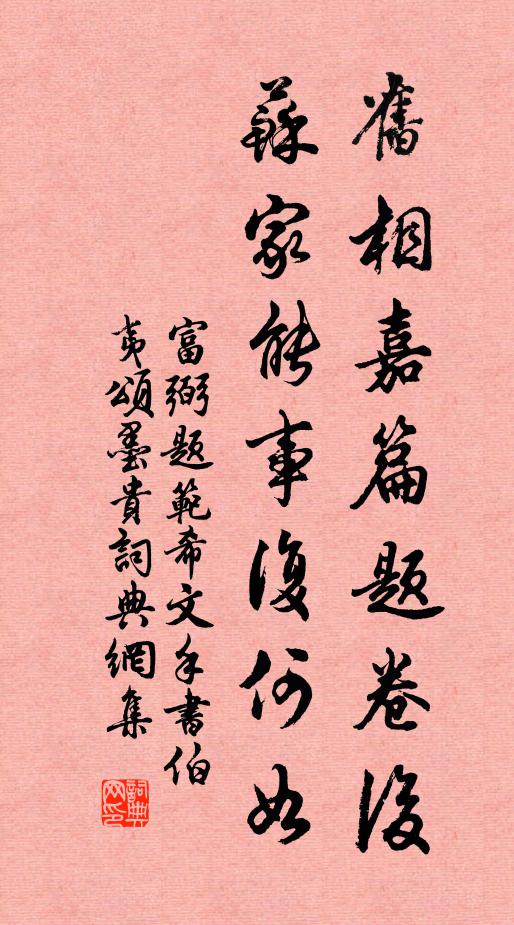 舊相嘉篇題卷後
蘇家能事復何如
富弼題範希文手書伯
夷頌墨貴詞典網集
詞典網印